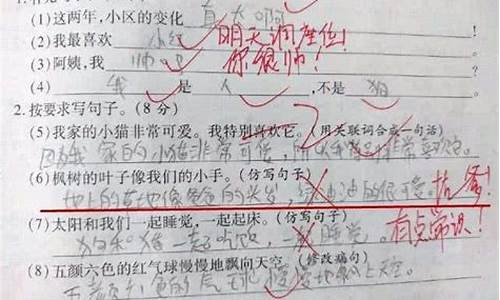 (1)这两年,小区的变化 真大啊
(2)我最喜欢 小红 明天调座位!
(3)阿姨,我 帅吧 你很帅!
(4) 我 是 人 ,不是 狗
2.按要求写句子。(8分)
(5)我家的小猫非常可爱。我特别喜欢它。(用关联词合成一句话)
因为我家的小猫非常可爱,所以我特别非常喜欢它。
(6)枫树的叶子像我们的小手。(仿写句子)
地上的草地像爸爸的头发,绿油油的很可爱。找爹!
(7)太阳和我们一起睡觉,一起起床。(仿写句子)
狗和猪一起吃饭,一起睡觉。有点常识!
(8)五颜六色的红气球慢慢地飘向天空。(修改病句)
五颜六色的气球慢慢地飘上天空。